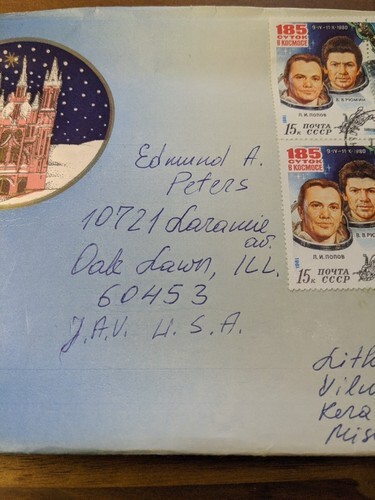 185
СУТОК
В КОСМОСЕ
9·IV-11·X·1980
Л.И.ПОПОВ
В.В.РЮМИН
1981
15к ПОЧТА
СССР
185
СУТОК
В КОСМОСЕ
9·IV-11·X·1980
Л.И.ПОПОВ
В.В.РЮ
1981
15к ПОЧТА
СССР
Edmund A.
Peters
10721 Laramie
av.
Oak Lawn, ILL.
60453
J.A.V. U.S.A.
Lith
Viln
Kera